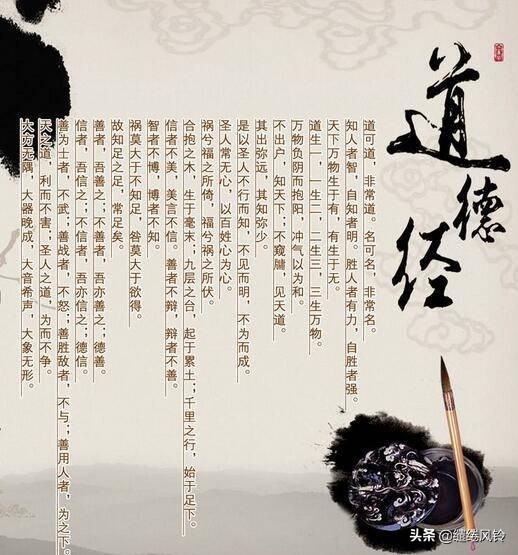 道德经
道可道，非常道。名可名，非常名。
知人者智，自知者明。胜人者有力，自胜者强。
天下万物生于有，有生于无。
道生一，一生二，二生三，三生万物。
万物负阴而抱阳，冲气以为和。
不出户，知天下；不窥牖，见天道。
其出弥远，其知弥少。
是以圣人不行而知，不见而明，不为而成。
圣人常无心，以百姓心为心。
祸兮福之所倚，福兮祸之所伏。
合抱之木，生于毫末；九层之台，起于累土；千里之行，始于足下。
信者不美，美言不信。善者不辩，辩者不善。
智者不博，博者不知。
祸莫大于不知足，咎莫大于欲得。
故知足之足，常足矣。
善者，吾善之；不善者，吾亦善之；德善。
信者，吾信之；不信者，吾亦信之；德信。
善为士者，不武；善战者，不怒；善胜敌者，不与；善用人者，为之下。
天之道，利而不害；圣人之道，为而不争。
大方无隅，大器晚成，大音希声，大象无形。
头条 @缱绻风铃